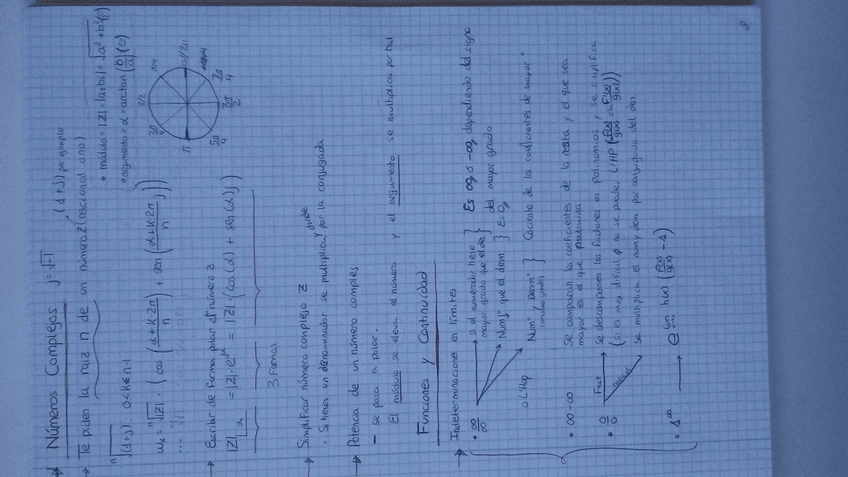 → Números Complejos j=√-1
→ Te piden la raiz n de un número z (racional o no) (d+j) por ejemplo
• módulo = |z| = |a+bi| = √a²+b² (ρ)
• argumento = α = arctan (b/a) (θ)
ⁿ√(d+j) 0<k≤n-1
wₖ = ⁿ√|z| · (cos (α+k2π/n) + sen (α+k2π/n j))
π/2
π/4
3π/4
0//2π
π
5π/4
3π/2
7π/4
→ Escribir de forma polar el número z
|z|α = |z|·e^jα = |z|·(cos(α) + sen(α)j)
3 formas
→ Simplificar número complejo z
· Si tienes un denominador se multiplica y divide por la conjugada
→ Potencia de un número complejo
– Se pasa a polar.
El módulo se eleva al número y el argumento se multiplica por tal
Funciones y Continuidad
→ Indeterminaciones en límites
• ∞/∞
si el numerador tiene mayor grado que el den } Es ∞ o -∞ dependiendo del signo del mayor grado
Numº que el dem } Es 0
Numº Demº } Cociente de los coeficientes de mayor º
o L'Hôp
• ∞-∞ Se comparan los coeficientes de la resta y el que sea mayor es el que predomina
• 0/0 Fact Se descomponen los factores en Polinomios y se simplifica
(si es muy dificil o no se puede, L'HP
Se multiplica el num y dem por conjugado del den.
• 1^∞ → e^lim h(x) (f(x)/g(x) -1)
8